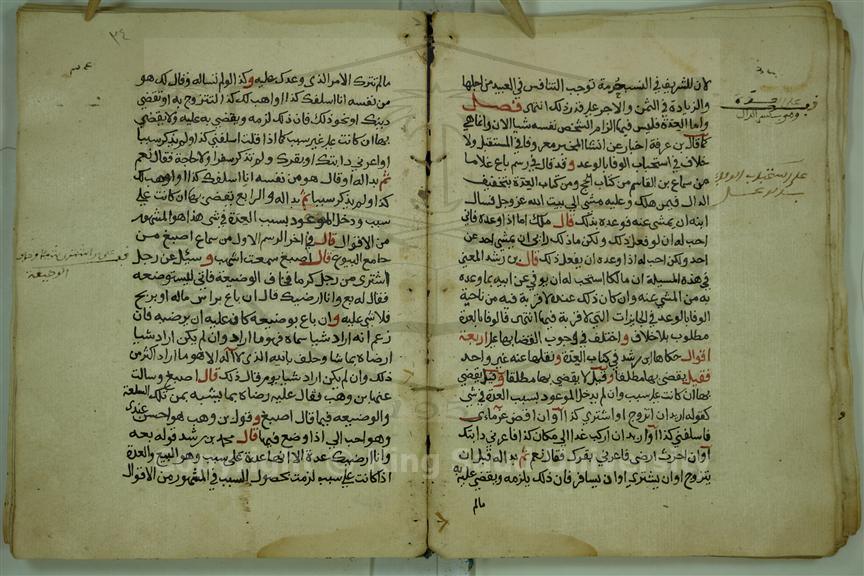 لان للشريف في النسب حرمة توجب التنافس في العبيد من اجلها
والزيادة في الثمن والاجر على قدر ذلك انتهى فصل
واما العدة فليس فيها الزام الشخص نفسه شيا الان وانما هي
كما قال بن عرفة اخبار عن انشا المخبر معروفا في المستقبل ولا
خلاف في استحباب الوفا بالوعد وقد قال في رسم باع غلاما
من سماع بن القاسم من كتاب الحج ومن كتاب العدة بتخفيف
الدال فيمن هلك وعليه مشي الى بيت الله عز وجل فسال
ابنه ان يمشي عنه فوعده بذلك قال ملك اما اذا وعده فاني
احب له ان لو فعل ذلك ولكن ما ذلك رايي ان يمشي احد عن
احد ولكن احب له اذا وعده ان يفعل ذلك قال بن رشد المعنى
في هذه المسيلة ان مالكا استحب له ان يوفي عن ابيه بما وعده
به من المشي عنه وان كان ذلك عنده لا قربة فيه من ناحية
الوفا بالوعد في الجايزات التي لا قربة فيها انتهى قالوفا بالعدة
مطلوب بلا خلاف واختلف في وجوب القضا بها على اربعة
اقوال حكاها بن رشد في كتاب العدة ونقلها عنه غير واحد
فقيل يقضى بها مطلقا وقيل لا يقضى بها مطلقا وقيل يقضى
بها ان كانت على سبب وان لم يدخل الموعود بسبب العدة في شي
كقوله اريد ان اتزوج او اشتري كذا او ان اقضي غرماي
فاسلفني كذا او اريد ان اركب غدا الى مكان كذا فاعرني دابتك
او ان احرث ارضي فاعرني بقرك فقال نعم ثم بدا له قبل ان
يتزوج او ان يشتري او ان يسافر فان ذلك يلزمه ويقضى عليه به
مالم
وهو بكسر الدال
على استحباب الوفا
٣٤
مالم تترك الامر الذي وعدك عليه وكذا لو لم تساله وقال لك هو
من نفسه انا اسلفك كذا او اهب لك كذا لتتزوج به او تقضي
دينك او نحو ذلك فان ذلك يلزمه ويقضى به عليه ولا يقضى
بها ان كانت على غير سبب كما اذا قلت اسلفني كذا ولم تذكر سببا
او اعرني دابتك او بقرك ولم تذكر سفرا ولا حاجة فقال نعم
ثم بدا له او قال هو من نفسه انا اسلفك كذا او اوهب لك
كذا ولم يذكر سببا ثم بدا له والرابع يقضى بها ان كانت على
سبب ودخل الموعود بسبب العدة في شي هذا هو المشهور
من الاقوال قال في اخر الرسم الاول من سماع اصبغ من
جامع البيوع قال اصبغ سمعت اشهب وسيل عن رجل
اشترى من رجل كرما فخاف الوضيعة فاتى ليستوضعه
فقال له بع وانا ارضيك قال ان باع براس ماله او بربح
فلا شي عليه وان باع بوضيعة كان عليه ان يرضيه فان
زعم انه اراد شيا سماه فهو ما اراد وان لم يكن اراد شيا
ارضاه بما شا وحلف بالله الذي لا اله الا هو ما اراد اكثر من
ذلك وان لم يكن اراد شيا يوم قال ذلك قال اصبغ وسالت
عنها بن وهب فقال عليه رضاه بما يشبه ثمن تلك السلعة
والوضيعة فيها قال اصبغ وقول بن وهب هو احسن عندي
وهو احب الي اذا وضع فيها قال محمد بن رشد قوله بعه
وانا ارضيك عدة الا انها عدة على سبب وهو البيع والعدة
اذا كانت على سبب لزمت بحصول السبب في المشهور من الاقوال